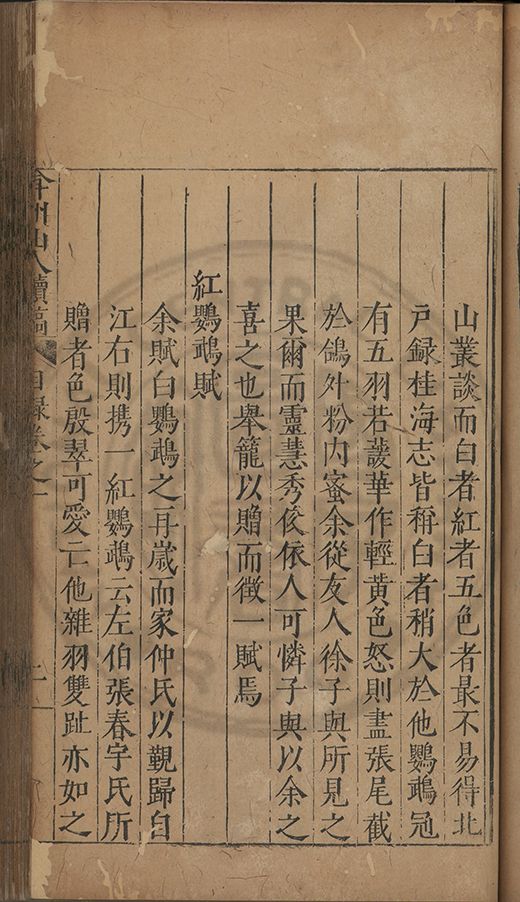 山叢談而白者紅者五色者最不易得北
戸録桂海志皆稱白者稍大於他鸚鵡冠
有五羽若蕿華作輕黃色怒則盡張尾截
於鴿外粉内蜜余從友人徐子與所見之
果爾而靈慧秀俊依人可憐子與以余之
喜之也舉籠以贈而徵一賦焉
紅鸚鵡賦
余賦白鸚鵡之再歲而家仲氏以覲歸自
江右則携一紅鸚鵡云左伯張春宇氏所
贈者色殷翠可愛亡他雜羽雙趾亦如之
弇州山人續稿 目録卷之一